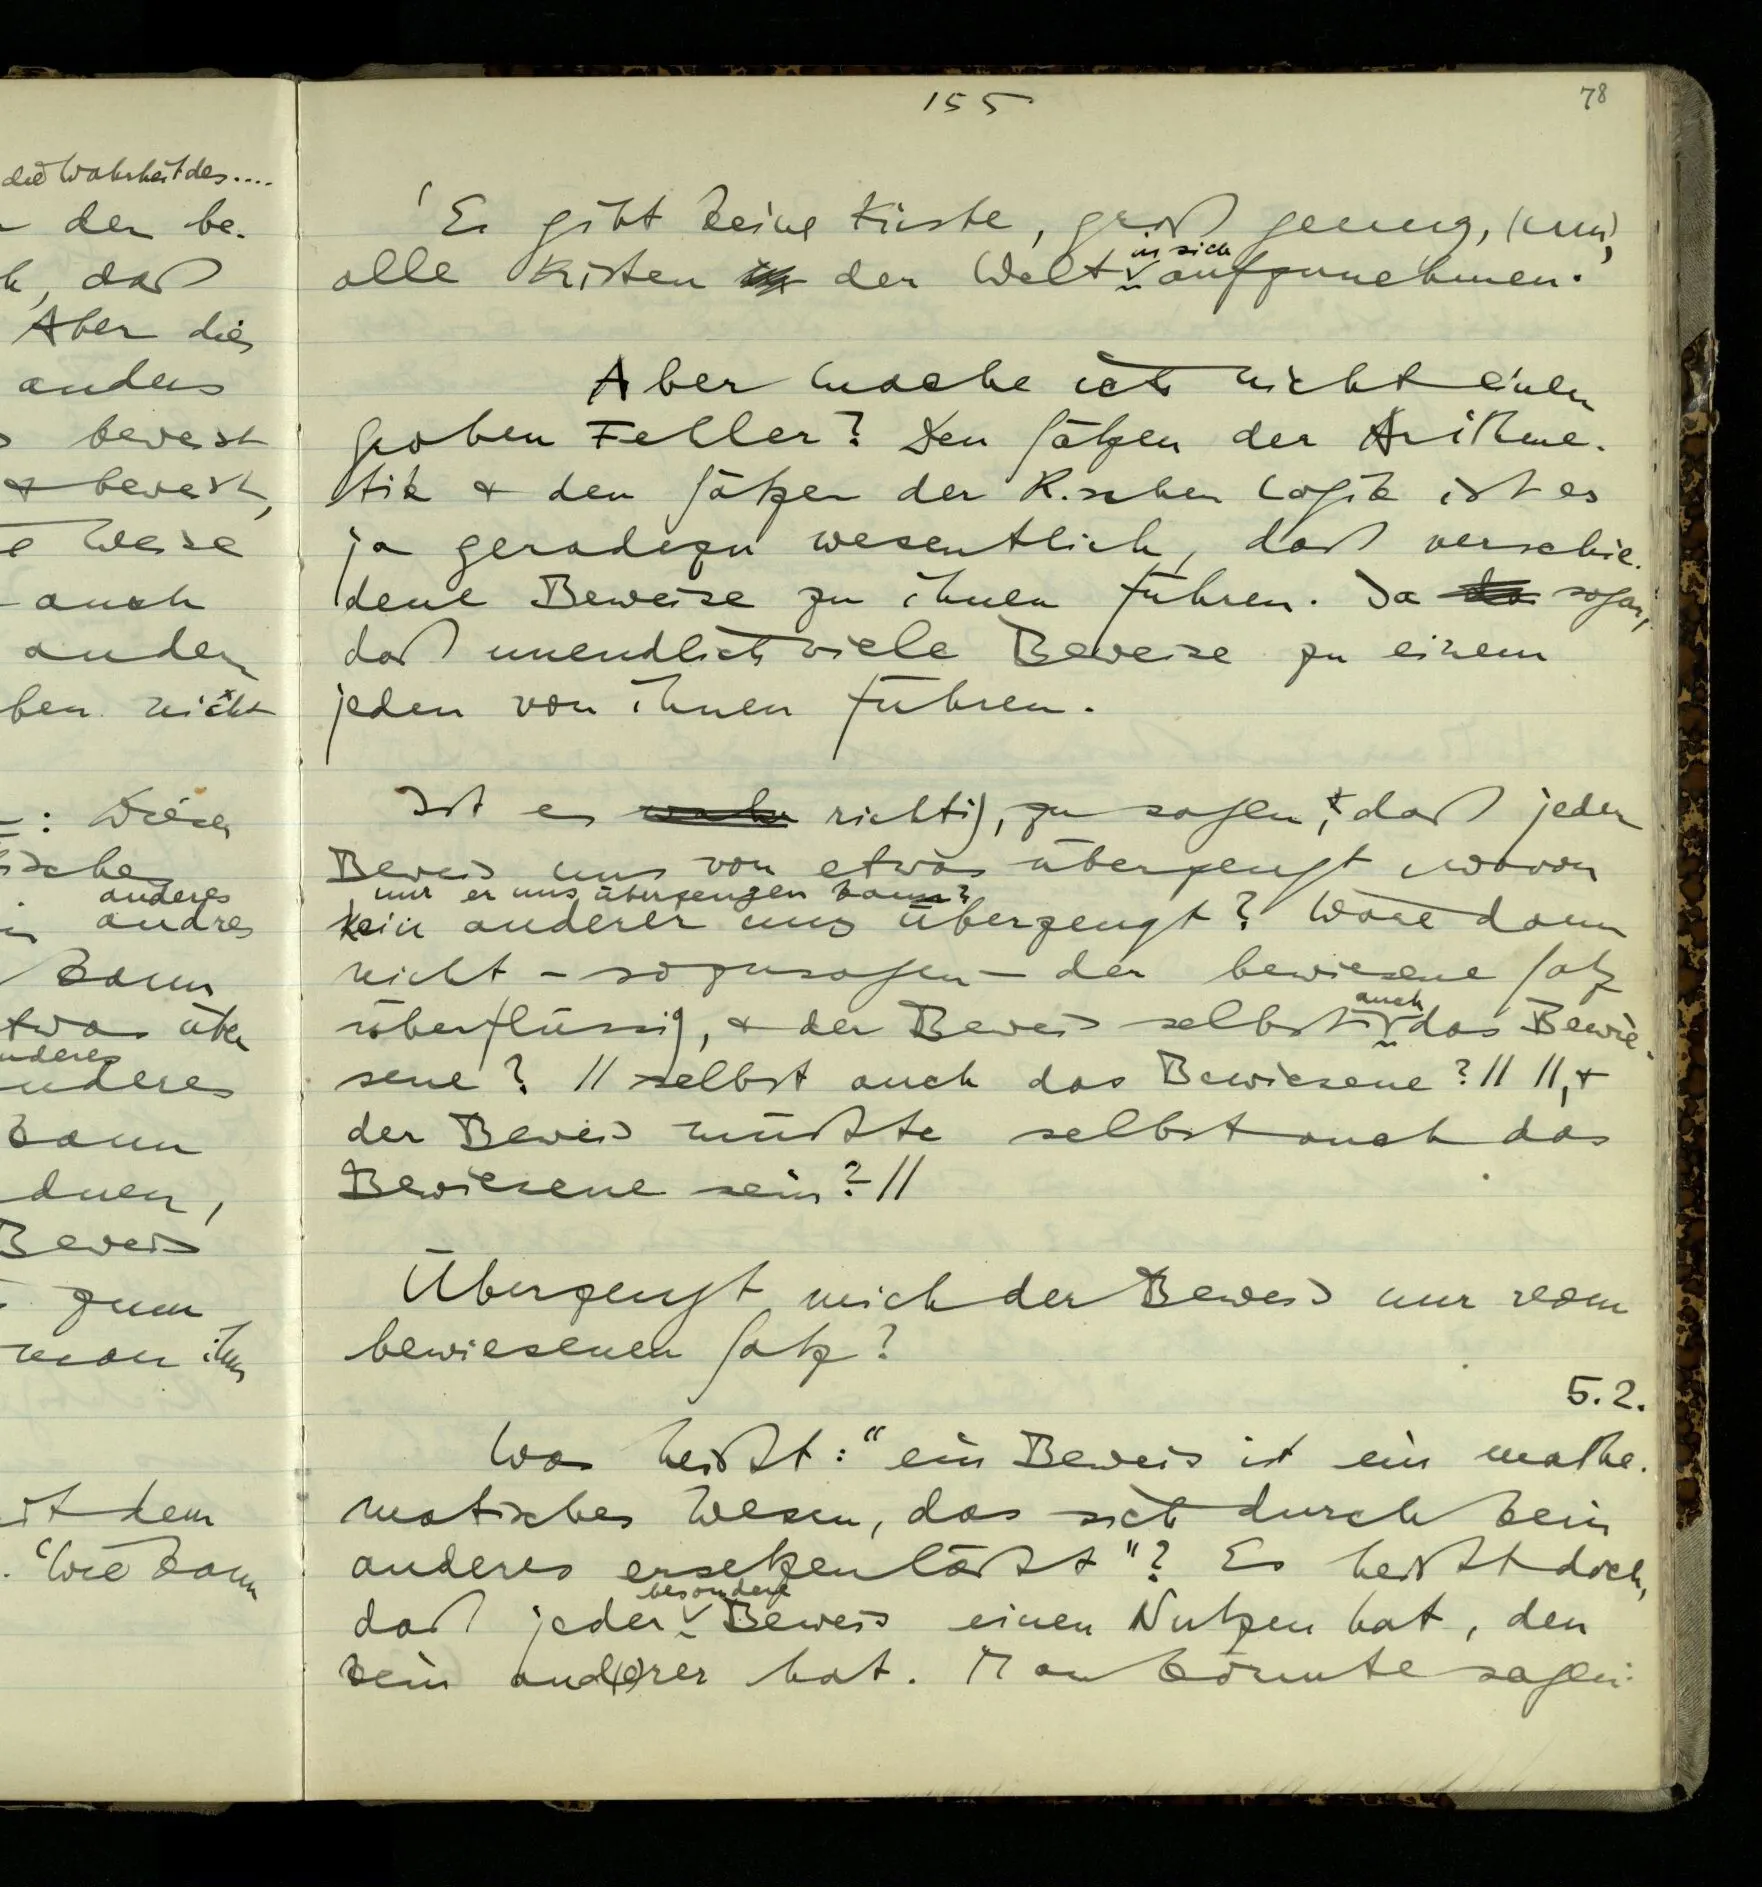 die Wahrheit des....
den be-
daß
Aber dies
anders
beweist
& beweist,
Weise
auch
andern
nicht
: Dieser
anderes
andres
kann
etwas über
anderes
anderes
kann
dnen,
Beweis
zum
man ihm
ist dem
'Wie kann
155
78
'Es gibt keine Kiste, groß genug, (um)
in sich
alle Kisten der Welt aufzunehmen.'
Aber mache ich nicht einen
groben Fehler? Den Sätzen der Arithme-
tik & den Sätzen der R.schen Logik ist es
ja geradezu wesentlich, daß verschie-
dene Beweise zu ihnen führen. Ja da sogar,
daß unendlich viele Beweise zu einem
jeden von ihnen führen.
Ist es wahr richtig, zu sagen, daß jeder
Beweis uns von etwas überzeugt wovon
nur er uns überzeugen kann?
kein anderer uns überzeugt? Wäre dann
nicht – sozusagen – der bewiesene Satz
überflüssig, & der Beweis selbst das Bewie-
auch
sene? // selbst auch das Bewiesene? // //, &
der Beweis müßte selbst auch das
Bewiesene sein? //
Überzeugt mich der Beweis nur vom
bewiesenen Satz?
5.2.
Was heißt: "ein Beweis ist ein mathe-
matisches Wesen, das sich durch kein
anderes ersetzen läßt"? Es heißt doch,
besondere
daß jeder Beweis einen Nutzen hat, den
kein and(e)rer hat. Man könnte sagen: